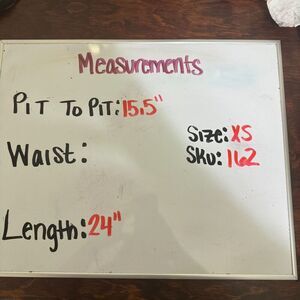 Measurements
Pit To Pit: 15.5"
Size: XS
Waist:
Sku: 162
Length: 24"